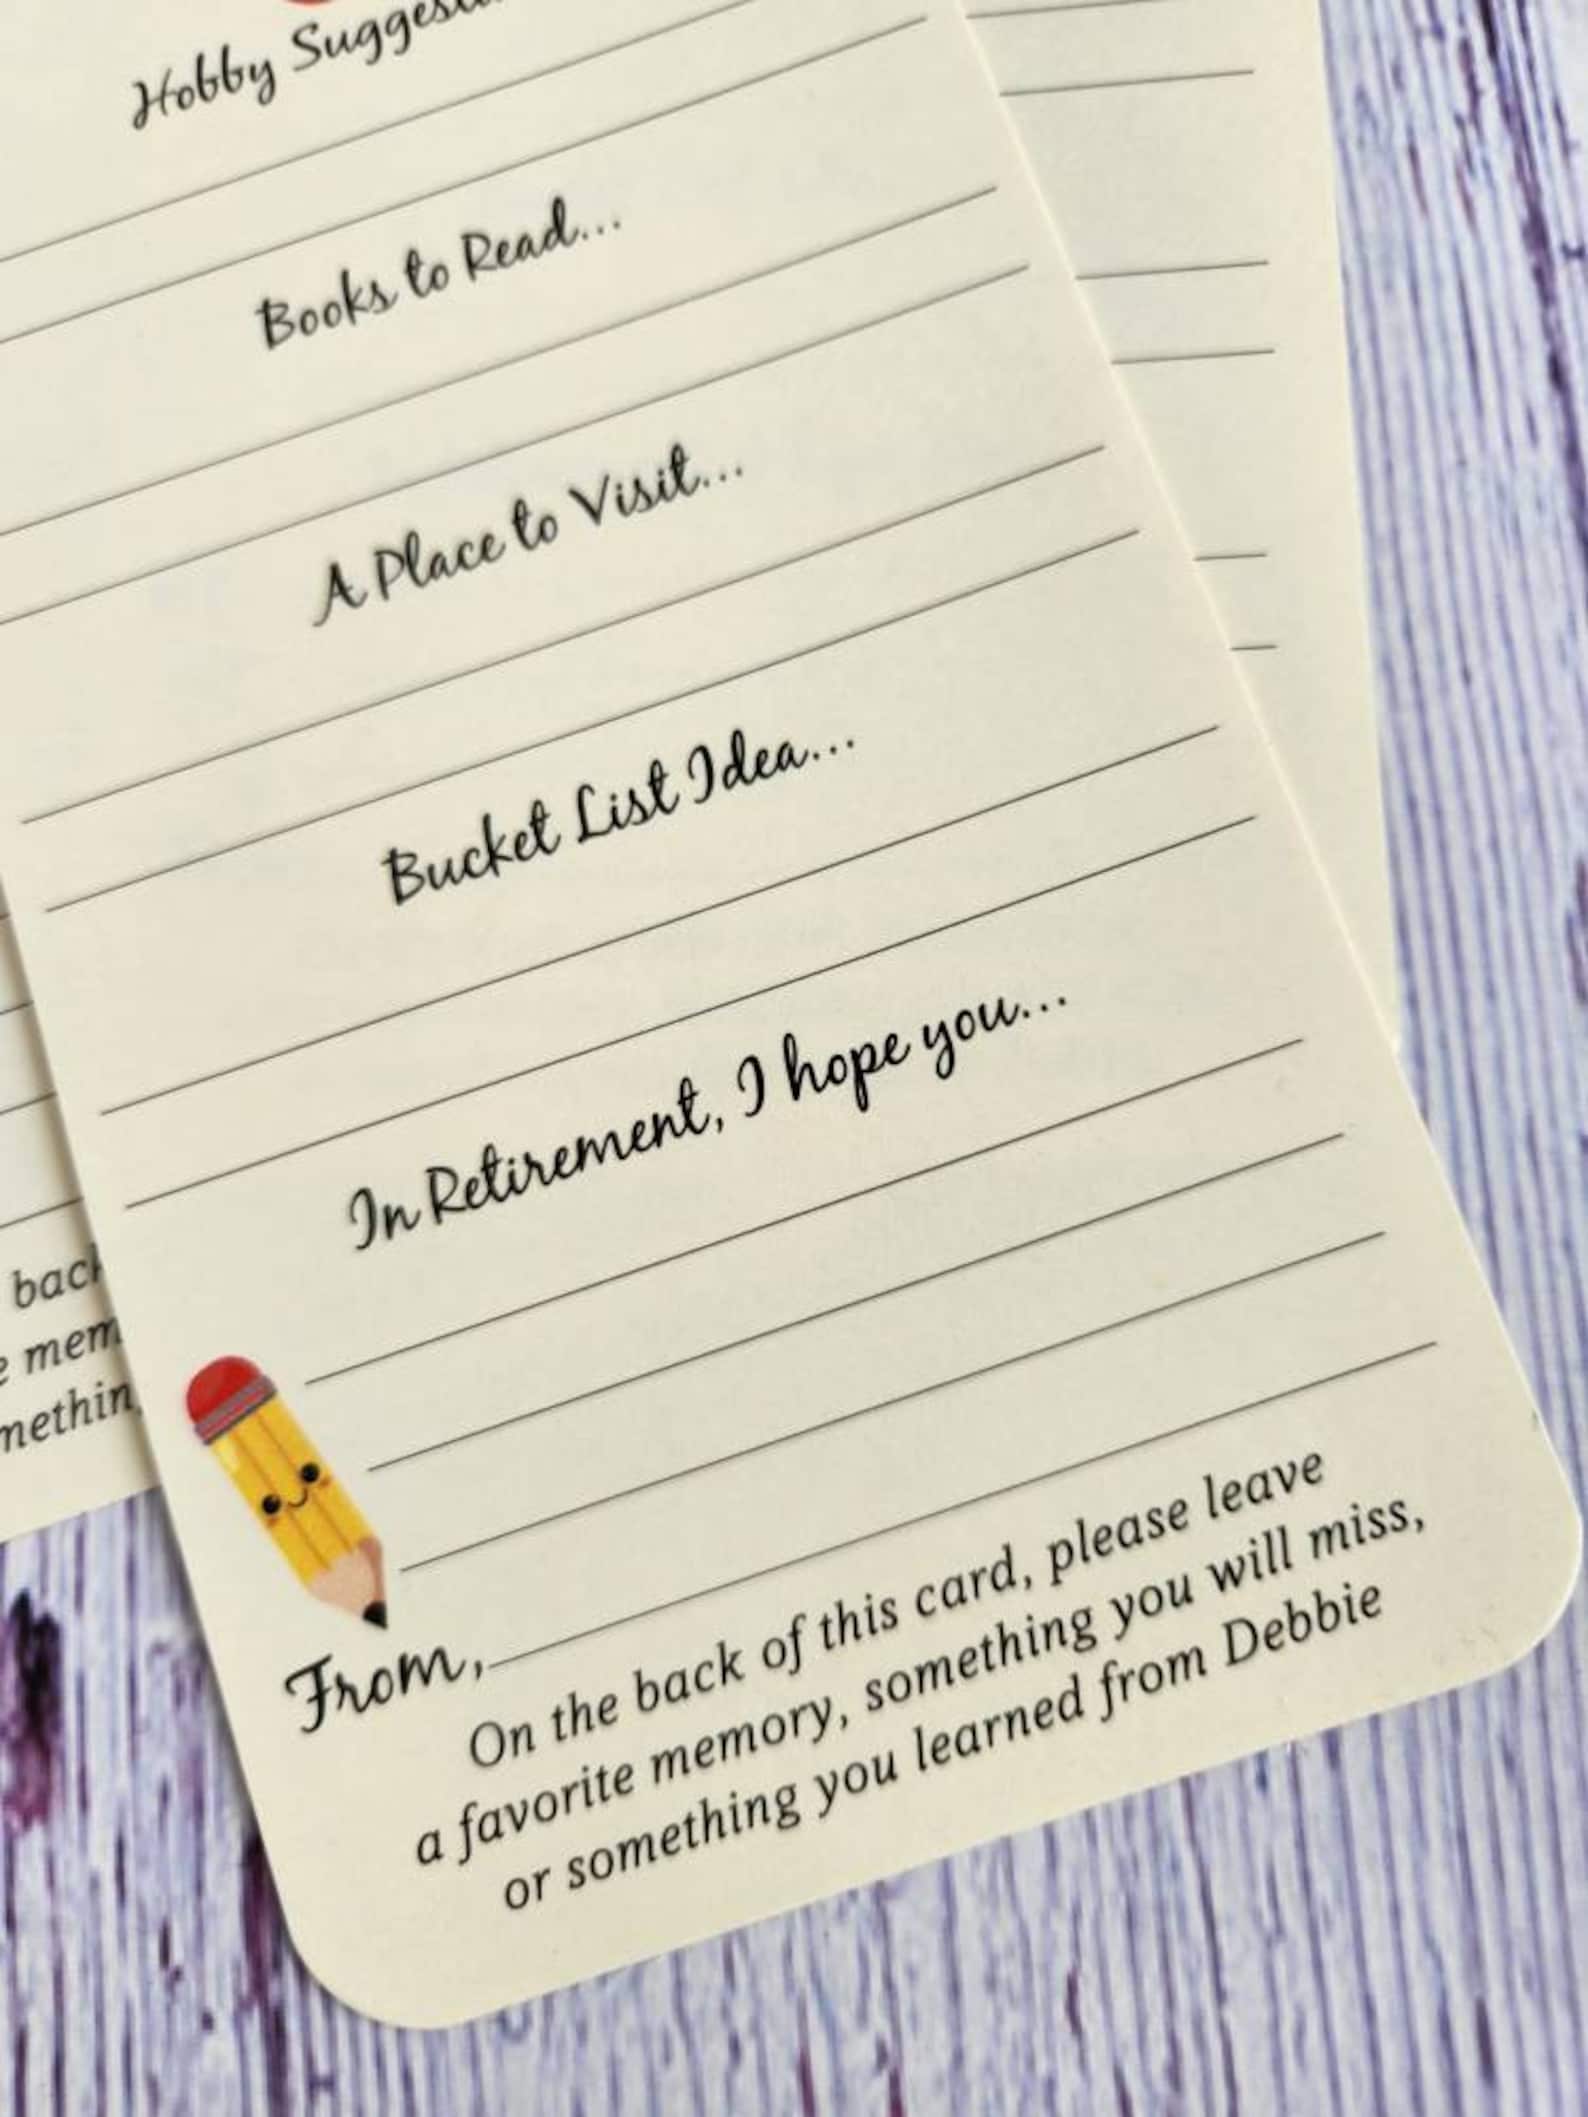 Hobby
Books to Read...
A Place to Visit...
Bucket List Idea...
In Retirement, I hope you...
From,
On the back of this card, please leave
a favorite memory, something you will miss,
or something you learned from Debbie
back